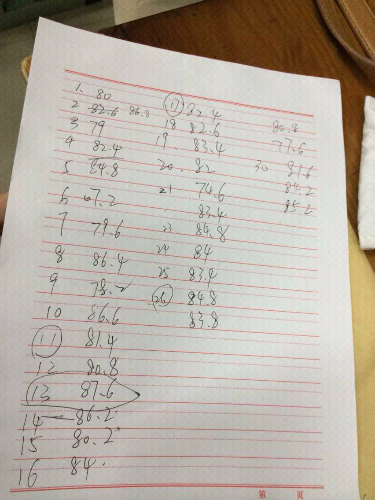 1. 80
2 82.6 86.8
3 79
4 82.4
5 84.8
6 67.2
7 79.6
8 86.4
9 78.2
10 86.6
11 81.4
12 80.8
13 87.6
14 86.2
15 80.2
16 84
17 82.4
18 82.6
19. 83.4
20. 82
21 74.6
83.4
23 84.8
24 84
25 83.4
26 84.8
83.8
80.8
77.6
30 81.6
84.2
85.2
第 页